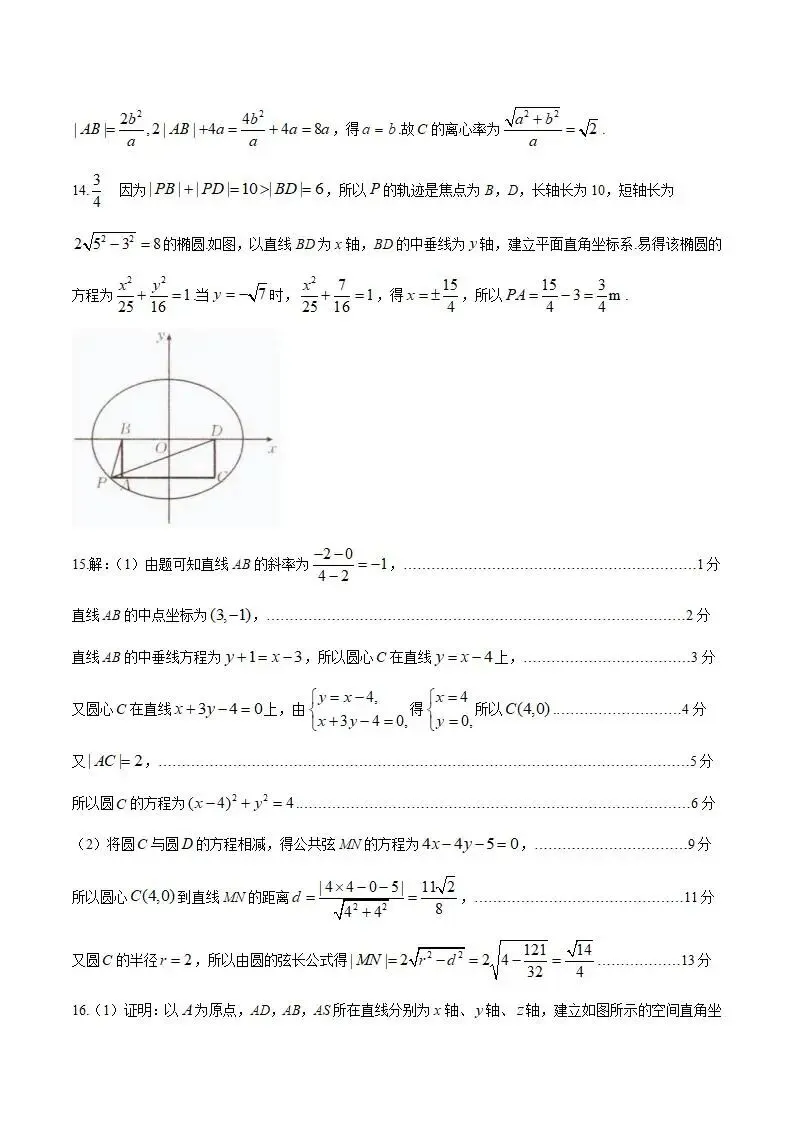 |AB|=2b²/a,2|AB|+4a=4b²/a+4a=8a，得a=b.故C的离心率为√(a²+b²)/a=√2．
14.3/4 因为|PB|+|PD|=10>|BD|=6，所以P的轨迹是焦点为B，D，长轴长为10，短轴长为
2√(5²−3²)=8的椭圆.如图，以直线BD为x轴，BD的中垂线为y轴，建立平面直角坐标系.易得该椭圆的
方程为x²/25+y²/16=1.当y=−√7时，x²/25+7/16=1，得x=±15/4，所以PA=15/4−3=3/4m．
y
B
D
O
x
P
A
C
15.解：（1）由题可知直线AB的斜率为(−2−0)/(4−2)=−1，……………………………………………………1分
直线AB的中点坐标为(3,−1)，……………………………………………………………………2分
直线AB的中垂线方程为y+1=x−3，所以圆心C在直线y=x−4上，………………………………3分
又圆心C在直线x+3y−4=0上，由{y=x−4, x+3y−4=0,得{x=4 y=0,所以C(4,0)………………………4分
又|AC|=2，………………………………………………………………………………………5分
所以圆C的方程为(x−4)²+y²=4……………………………………………………………………6分
（2）将圆C与圆D的方程相减，得公共弦MN的方程为4x−4y−5=0，……………………………9分
所以圆心C(4,0)到直线MN的距离d=|4×4−0−5|/√(4²+4²)=11√2/8，………………………………………11分
又圆C的半径r=2，所以由圆的弦长公式得|MN|=2√(r²−d²)=2√(4−121/32)=√14/4………………13分
16.（1）证明：以A为原点，AD，AB，AS所在直线分别为x轴、y轴、z轴，建立如图所示的空间直角坐